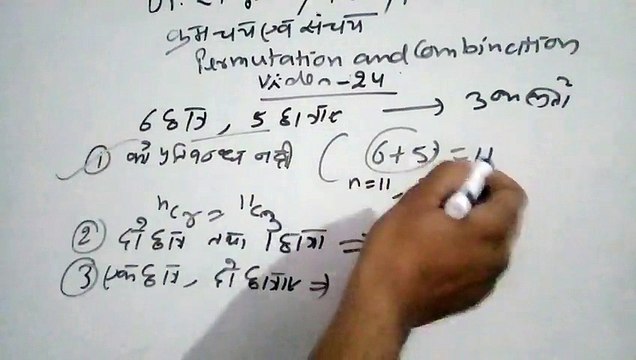 क्रमचय एवं संचय
Permutation and Combination
Video-24
6 छात्र, 5 छात्राएं → 3
① कोई प्रतिबन्ध नहीं (6+5) = 11
n=11
ⁿCᵣ = ¹¹C₃
② दो छात्र तथा 1 छात्रा ⇒
③ एक छात्र, दो छात्राएं ⇒